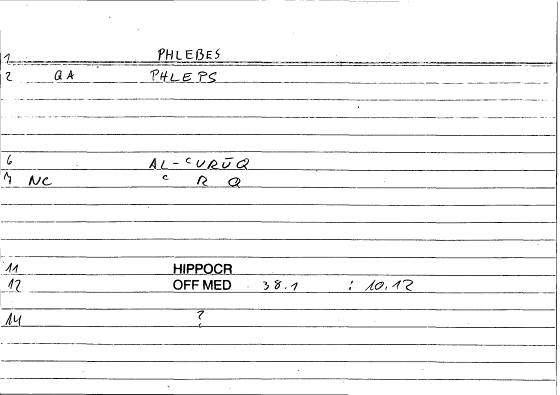 1 PHLEBES
2 QA PHLEPS
6 AL-ᶜURŪQ
7 NC ᶜ R Q
11 HIPPOCR
12 OFF MED 38.1 : 10.12
14 ?